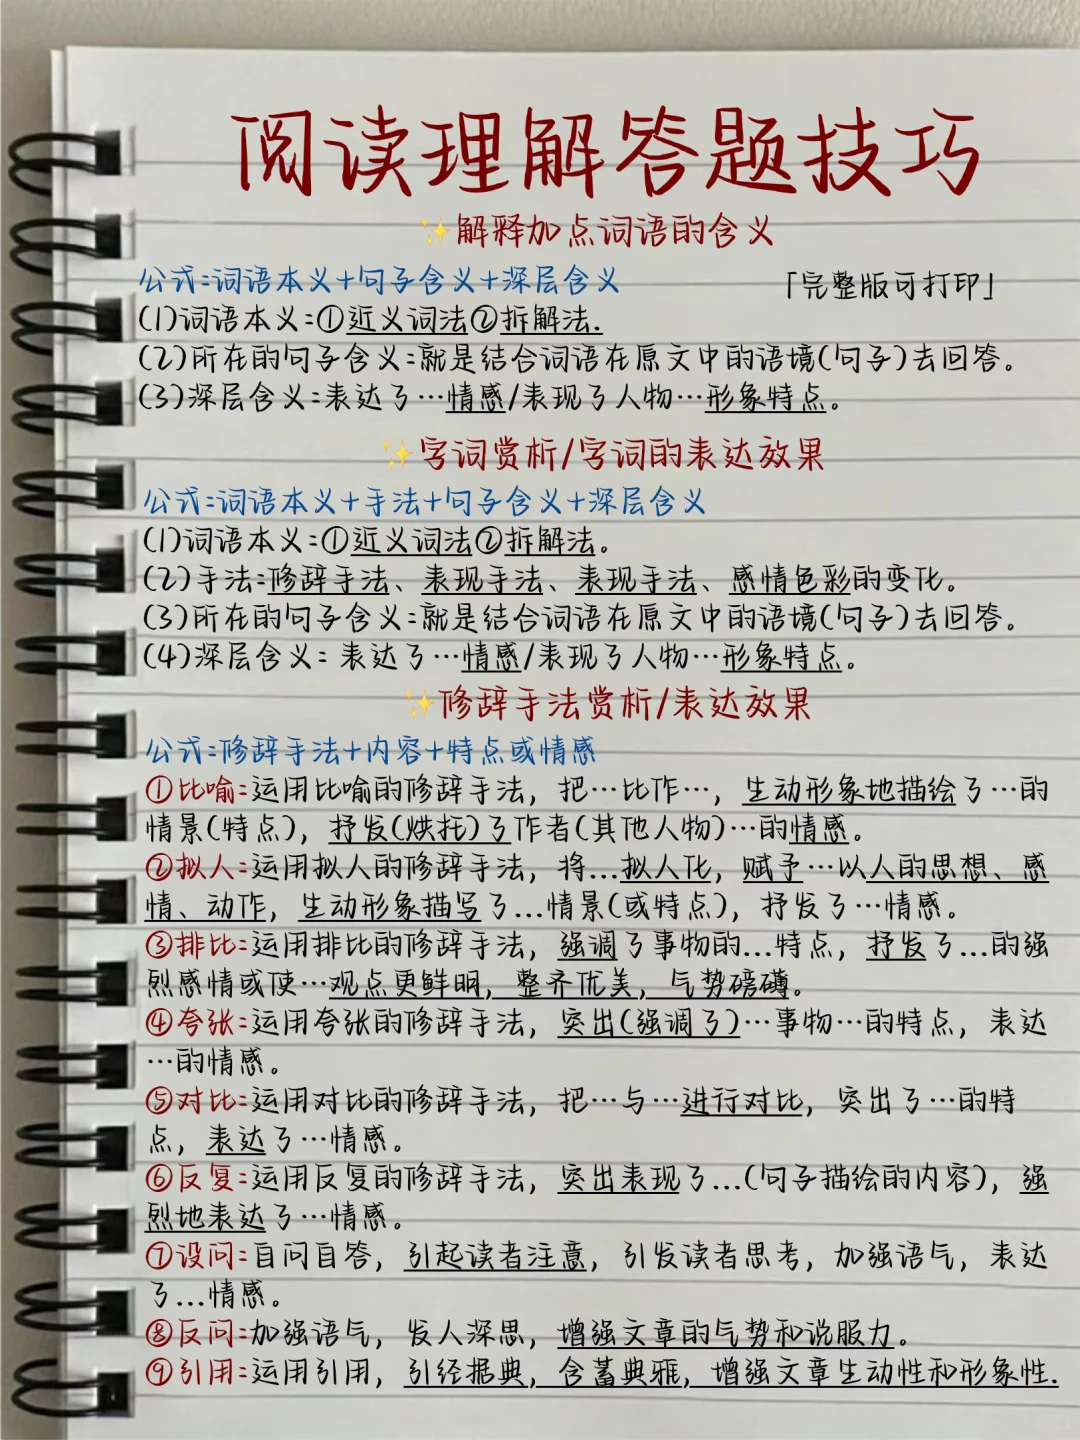 阅读理解答题技巧
✨解释加点词语的含义
公式:词语本义+句子含义+深层含义
「完整版可打印」
(1)词语本义:①近义词法②拆解法.
(2)所在的句子含义:就是结合词语在原文中的语境(句子)去回答。
(3)深层含义:表达了…情感/表现了人物…形象特点。
✨字词赏析/字词的表达效果
公式:词语本义+手法+句子含义+深层含义
(1)词语本义:①近义词法②拆解法。
(2)手法:修辞手法、表现手法、表现手法、感情色彩的变化。
(3)所在的句子含义:就是结合词语在原文中的语境(句子)去回答。
(4)深层含义: 表达了…情感/表现了人物…形象特点。
✨修辞手法赏析/表达效果
公式:修辞手法+内容+特点或情感
①比喻:运用比喻的修辞手法，把…比作…，生动形象地描绘了…的
情景(特点)，抒发(烘托)了作者(其他人物)…的情感。
②拟人:运用拟人的修辞手法，将...拟人化，赋予…以人的思想、感
情、动作，生动形象描写了...情景(或特点)，抒发了…情感。
③排比:运用排比的修辞手法，强调了事物的...特点，抒发了...的强
烈感情或使…观点更鲜明，整齐优美，气势磅礴。
④夸张:运用夸张的修辞手法，突出(强调了)…事物…的特点，表达
…的情感。
⑤对比:运用对比的修辞手法，把…与…进行对比，突出了…的特
点，表达了…情感。
⑥反复:运用反复的修辞手法，突出表现了...(句子描绘的内容)，强
烈地表达了…情感。
⑦设问:自问自答，引起读者注意，引发读者思考，加强语气，表达
了...情感。
⑧反问:加强语气，发人深思，增强文章的气势和说服力。
⑨引用:运用引用，引经据典，含蓄典雅，增强文章生动性和形象性.